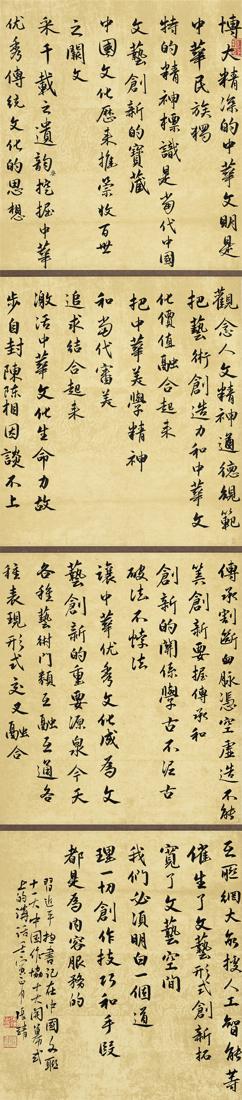 博大精深的中华文明是
中華民族獨
特的精神標識是當代中國
文藝創新的寶藏
中國文化歷来推崇收百世
之闕文
采千載之遺韵挖握中華
優秀傳統文化的思想
觀念人文精神道德規範
把藝術創造力和中華文
化價值融合起来
把中華美學精神
和當代審美
追求結合起来
激活中華文化生命力故
步自封陳陳相因談不上
傳承割斷血脉憑空虚造不能
算創新要握傳承和
創新的關係學古不泥古
破法不悖法
讓中華優秀文化成為文
藝創新的重要源泉今天
各種藝術门類互融互通各
種表現形式交叉融合
互聯網大數據人工智能等
催生了文藝形式創新拓
寬了文藝空間
我們必須明白一個道
理一切創作技巧和手段
都是為内容服務的
習近平總書記在中國文聯
十一大中國作協十大開幕式
上的講話壬寅正月